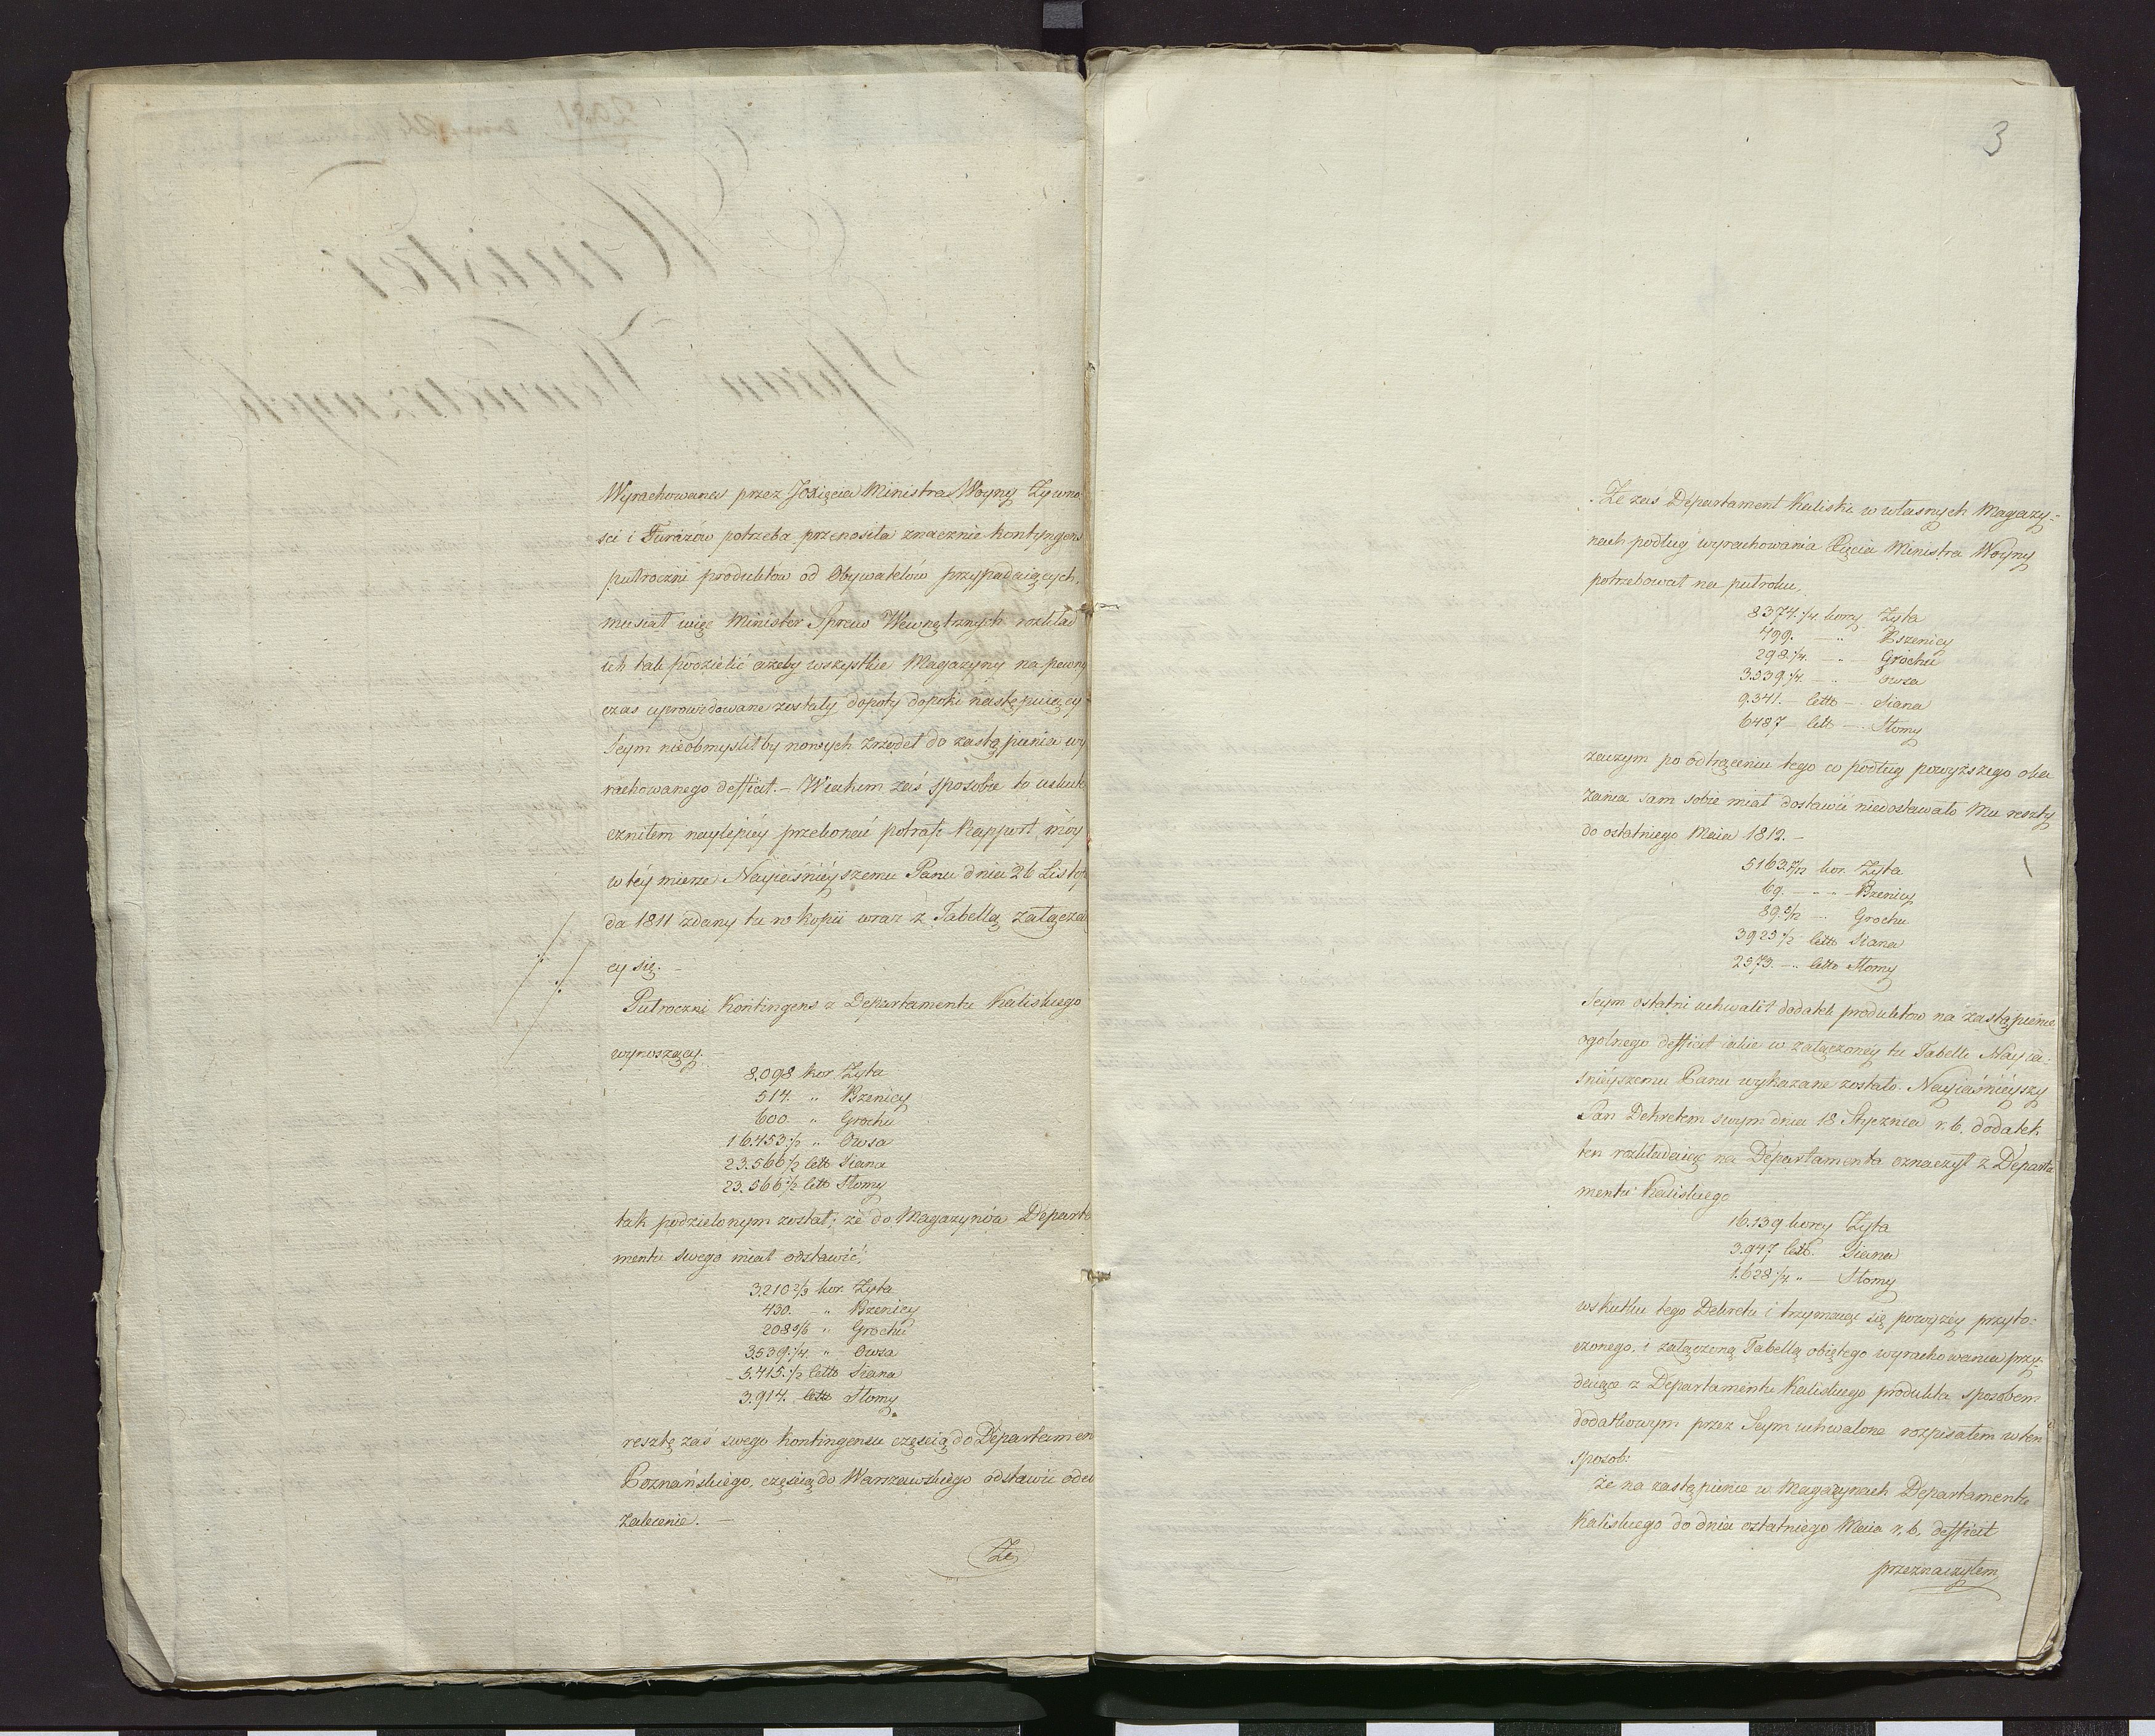 Wyrachowana przez JOXięcia Ministra Woyny Żywno
sci i Furażów potrzeba przenosiła znacznie kontyngens
pułroczni produktow od Obywatelów przypadaiących,
musiał więc Minister Spraw Wewnętrznych rozkład
ich tak podzielić ażeby wszystkie Magazyny na pewny
czas uprowidowane zostały, dopoty dopoki następuiący
Seym nieobmyslił by nowych zrzodeł do zastąpienia wy
rachowanego defficit. – W iakim zaś sposobie to usku
cznilem naylepiey przekonać potrafi Rapport móy
w téy mierze Nayiaśnieyszemu Panu dnia 26 Listopa
da 1811 zdany tu w kopii wraz z Tabellą załącza
cy się. –
Pułroczni Kontingens z Departamentu Kaliskiego
wynoszący. –
8,098 kor Żyta
514. " Pszenicy
600. " Grochu
16.453 1/2 " Owsa
23.566 1/2 cetto Siana
23.566 1/2 cetto Słomy
tak podzielonym został; że do Magazynów Departa
mentu swego miał odstawić,
3,210 2/3 kor. Żyta
430. – " Pszenicy
208 5/6 " Grochu
3539 1/4. " Owsa
5.415 1/2 cetto Siana
3.914. cetto Słomy
resztę zaś swego kontingensu częscią do Departamen
Poznańskiego, częscią do Warszawskiego odstawić ode
zalecenie. –
Że
3
Że zas Departament Kaliski w własnych Magazy=
nach podług wyrachowania Xięcia Ministra Woyny
potrzebował na pułroku,
8374 1/4. korcy Żyta
499. – " Pszenicy
298 1/4. – " – Grochu
3.539 1/4. – " – Owsa
9.341. – cetto – Siana
6487 – cett – Słomy
zaczym po odtrąceniu tego co podług powyższego oka
zania sam sobie miał dostawić niedostawało Mu reszty
do ostatniego Maia 1812. –
5163 7/12 kor. Żyta
69. – – – Pszenicy
89 5/12 – Grochu
3925 1/2 cetto Siana
2573. – cetto Słomy
Seym ostatni uchwalił dodatek produktow na zastąpienie
ogolnego defficit iakie w załączoney tu Tabelli Nayia:
śnieyszemu Panu wykazane zostało. Nayiaśnieyszy
Pan Dekretem swym dnia 18 Stycznia r. b. dodatek
ten rozkładaiąc na Departamenta oznaczył z Departa
mentu Kaliskiego
16.139 korcy Żyta
3.947 cett. Siana
1.628 1/4 " – Słomy
w skutku tego Dekretu i trzymaiąc się powyżéy przyto:
czonego, i załączoną Tabellą obiętego wyrachowania przy=
daiące z Departamentu Kaliskiego produkta sposobem
dodatkowym przez Seym uchwalone rozpisałem w ten
sposob:
że na zastąpienie w Magazynach Departamentu
Kaliskiego do dnia ostatniego Maia r. b. defficit
przeznaczyłem,